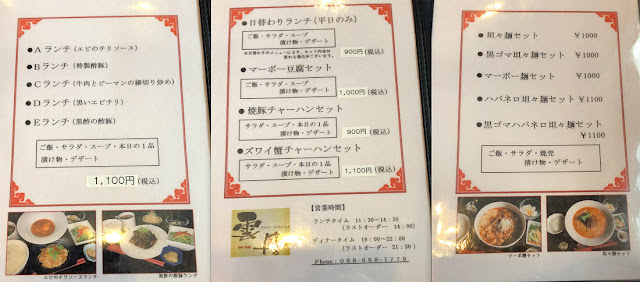 ●Aランチ(エビのチリソース)
●Bランチ(特製酢豚)
●Cランチ(牛肉とピーマンの細切り炒め)
●Dランチ(黒いエビチリ)
●Eランチ(黒酢の酢豚)
ご飯・サラダ・スープ・本日の1品
漬け物・デザート
1,100円(税込)
エビのチリソースランチ
黒酢の酢豚ランチ
●日替わりランチ(平日のみ)
ご飯・サラダ・スープ
漬け物・デザート
900円(税込)
●マーボー豆腐セット
ご飯・サラダ・スープ
漬け物・デザート
1,000円(税込)
●焼豚チャーハンセット
サラダ・スープ・本日の1品
漬け物・デザート
900円(税込)
●ズワイ蟹チャーハンセット
サラダ・スープ・本日の1品
漬け物・デザート
1,100円(税込)
【営業時間】
ランチタイム 11:30~14:30
(ラストオーダー 14:00)
ディナータイム 18:00~22:00
(ラストオーダー 21:30)
Phone:088-668-7779
●坦々麺セット ¥1000
●黒ゴマ坦々麺セット ¥1000
●マーボー麺セット ¥1000
●ハバネロ坦々麺セット ¥1100
●黒ゴマハバネロ坦々麺セット
¥1100
ご飯・サラダ・焼売
漬け物・デザート
マーボ麺セット
坦々麺セット